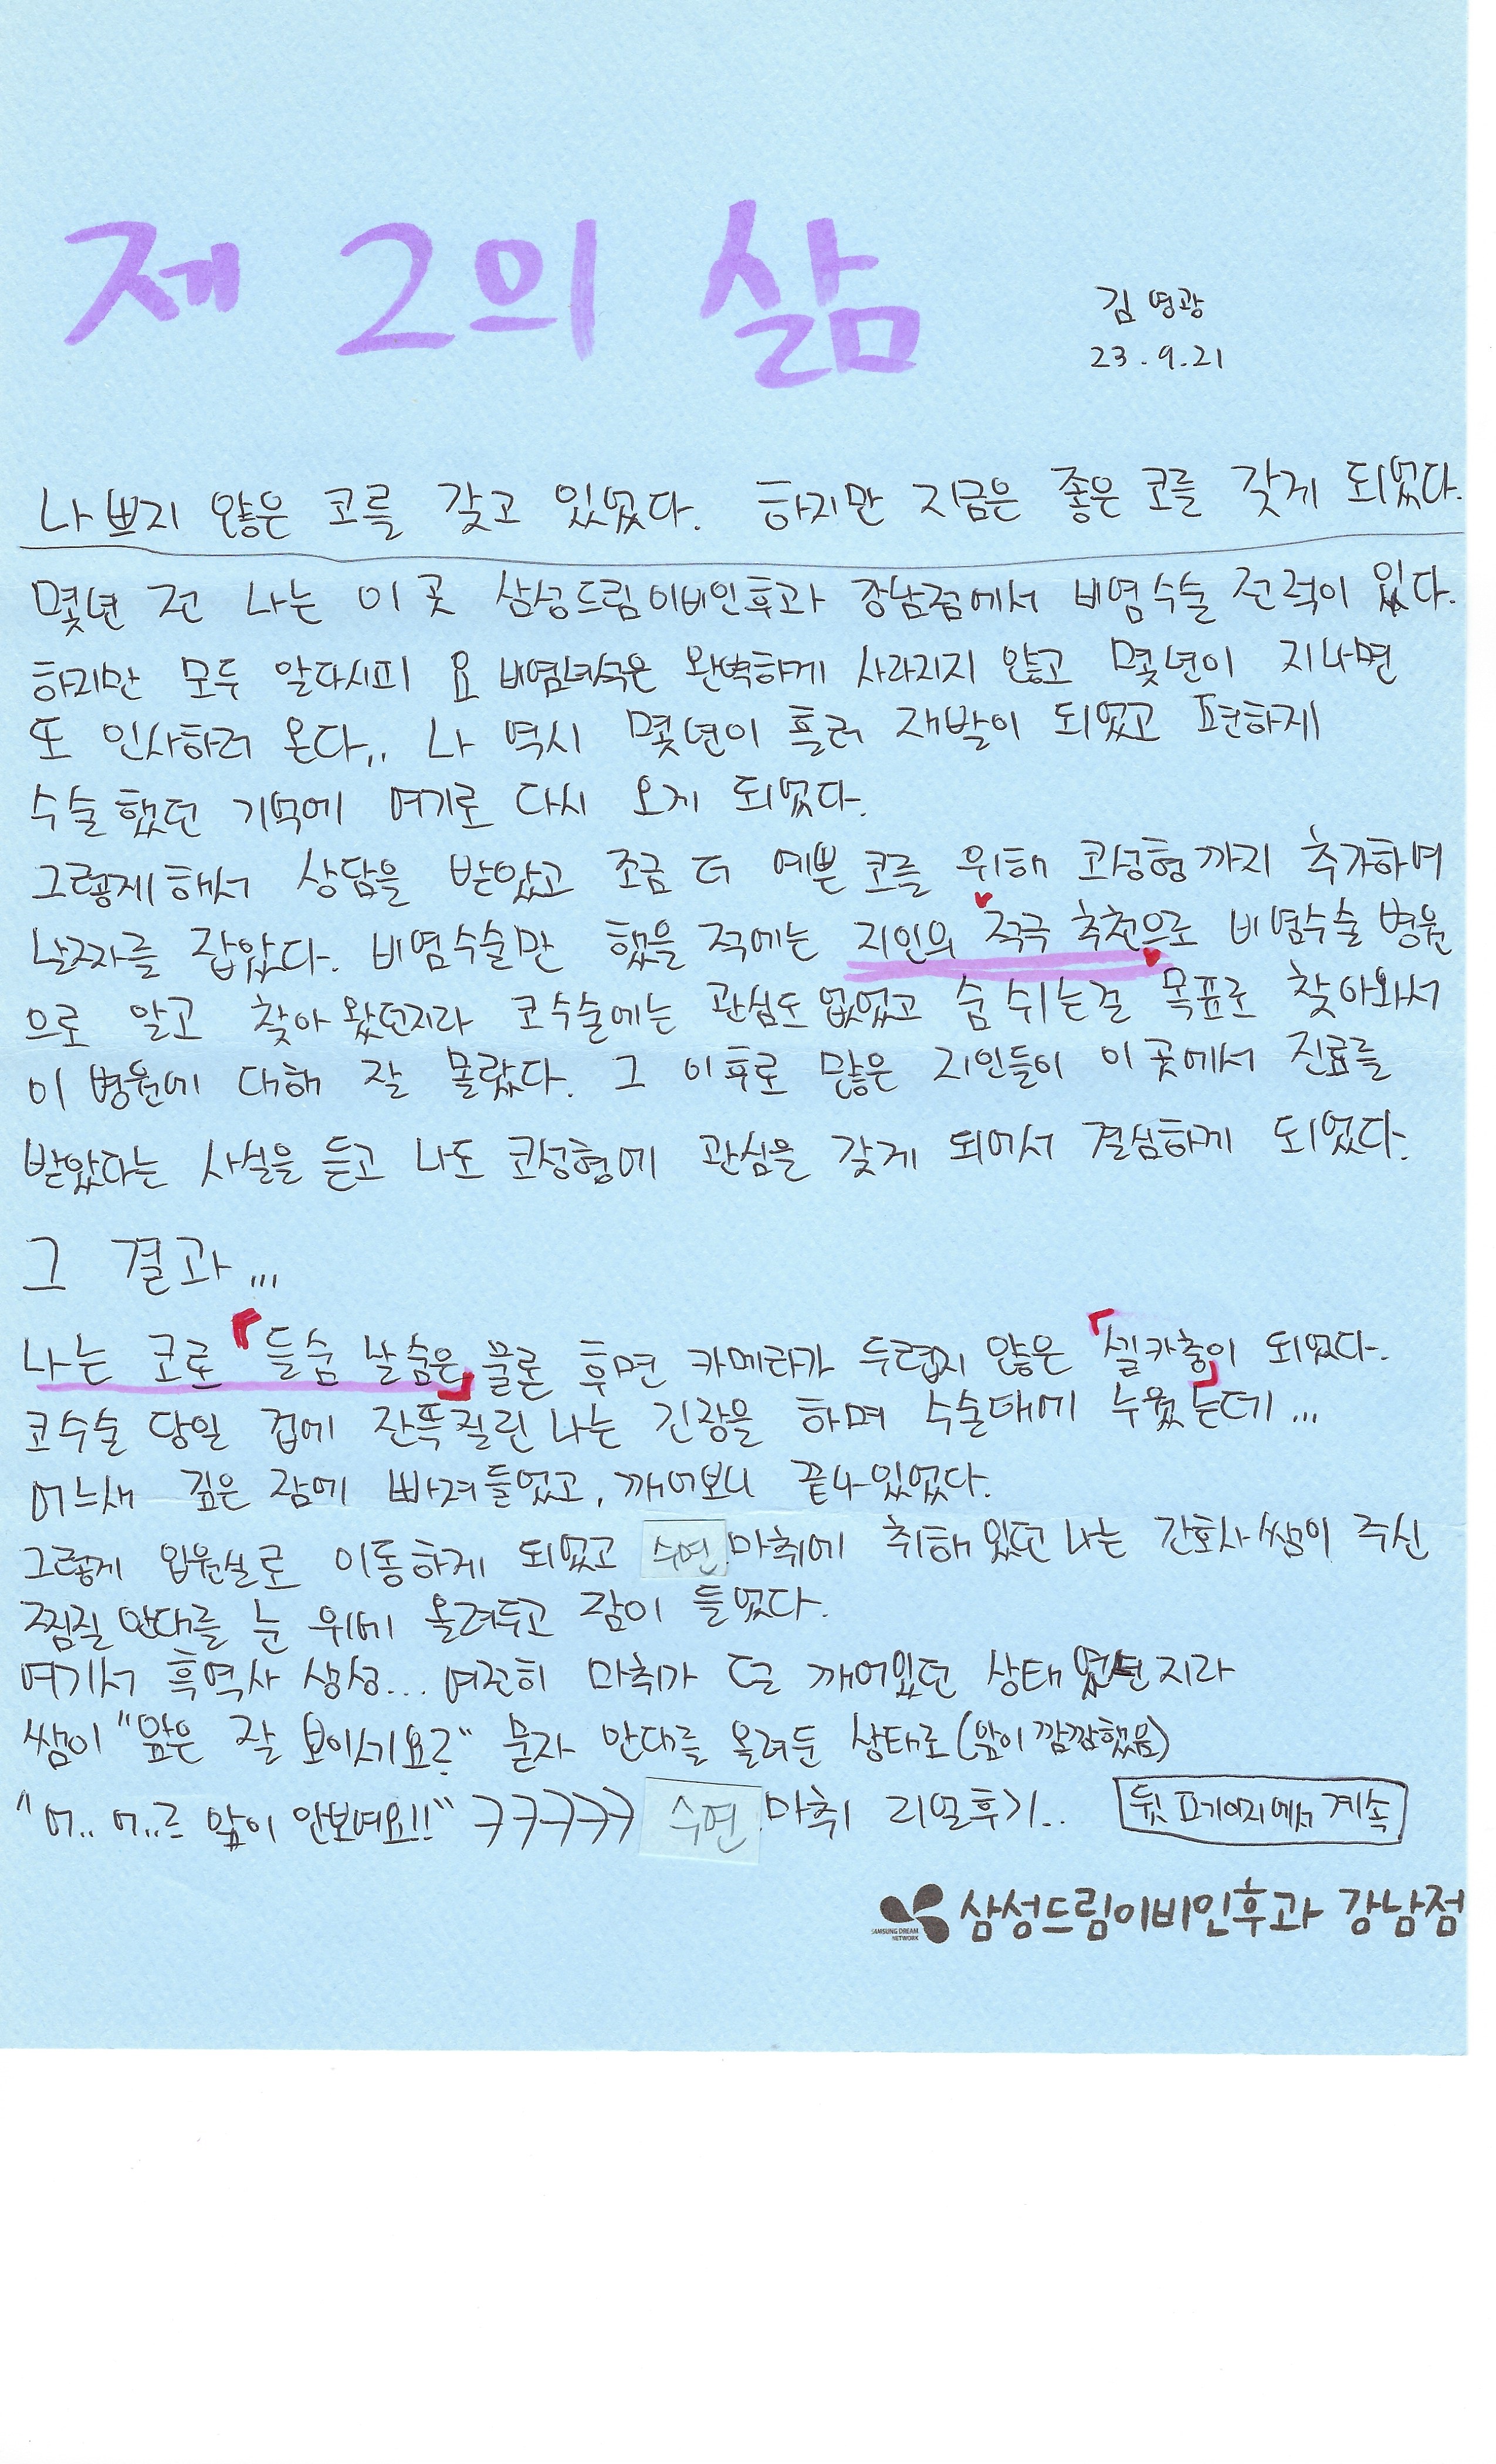 제 2의 삶
김영광
23.9.21
나쁘지 않은 코를 갖고 있었다. 하지만 지금은 좋은 코를 갖게 되었다.
몇년 전 나는 이 곳 삼성드림이비인후과 강남점에서 비염수술 전력이 있다.
하지만 모두 알다시피 요 비염녀석은 완벽하게 사라지지 않고 몇년이 지나면
또 인사하러 온다,, 나 역시 몇년이 흘러 재발이 되었고 편하게
수술했던 기억에 여기로 다시 오게 되었다.
그렇게해서 상담을 받았고 조금 더 예쁜 코를 위해 코성형까지 추가하여
날짜를 잡았다. 비염수술만 했을 적에는 지인의 적극 추천으로 비염수술 병원
으로 알고 찾아왔던지라 코수술에는 관심도 없었고 숨 쉬는걸 목표로 찾아와서
이 병원에 대해 잘 몰랐다. 그 이후로 많은 지인들이 이 곳에서 진료를
받았다는 사실을 듣고 나도 코성형에 관심을 갖게 되어서 결심하게 되었다.
그 결과...
나는 코로 「들숨 날숨은」 물론 후면 카메라가 두렵지 않은 「셀카충이」 되었다.
코수술 당일 겁에 잔뜩질린 나는 긴장을 하며 수술대에 누웠는데...
어느새 깊은 잠에 빠져들었고, 깨어보니 끝나있었다.
그렇게 입원실로 이동하게 되었고 수면 마취에 취해있던 나는 간호사쌤이 주신
찜질안대를 눈 위에 올려두고 잠이 들었다.
여기서 흑역사 생성... 여전히 마취가 덜 깨어있던 상태였던지라
쌤이 "앞은 잘 보이세요?" 묻자 안대를 올려둔 상태로(앞이 깜깜했음)
"어..어..ㄹ 앞이 안보여요!!" ㅋㅋㅋㅋㅋ 수면 마취 리얼후기.. 뒷 페이지에서 계속
SAMSUNG DREAM NETWORK 삼성드림이비인후과 강남점